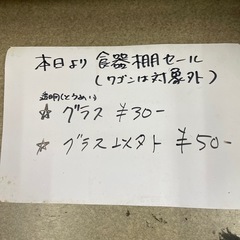 本日より 食器棚セール
(ワゴンは対象外)
透明(とうめい)
☆ グラス ¥30-
☆ グラス以外 ¥50-